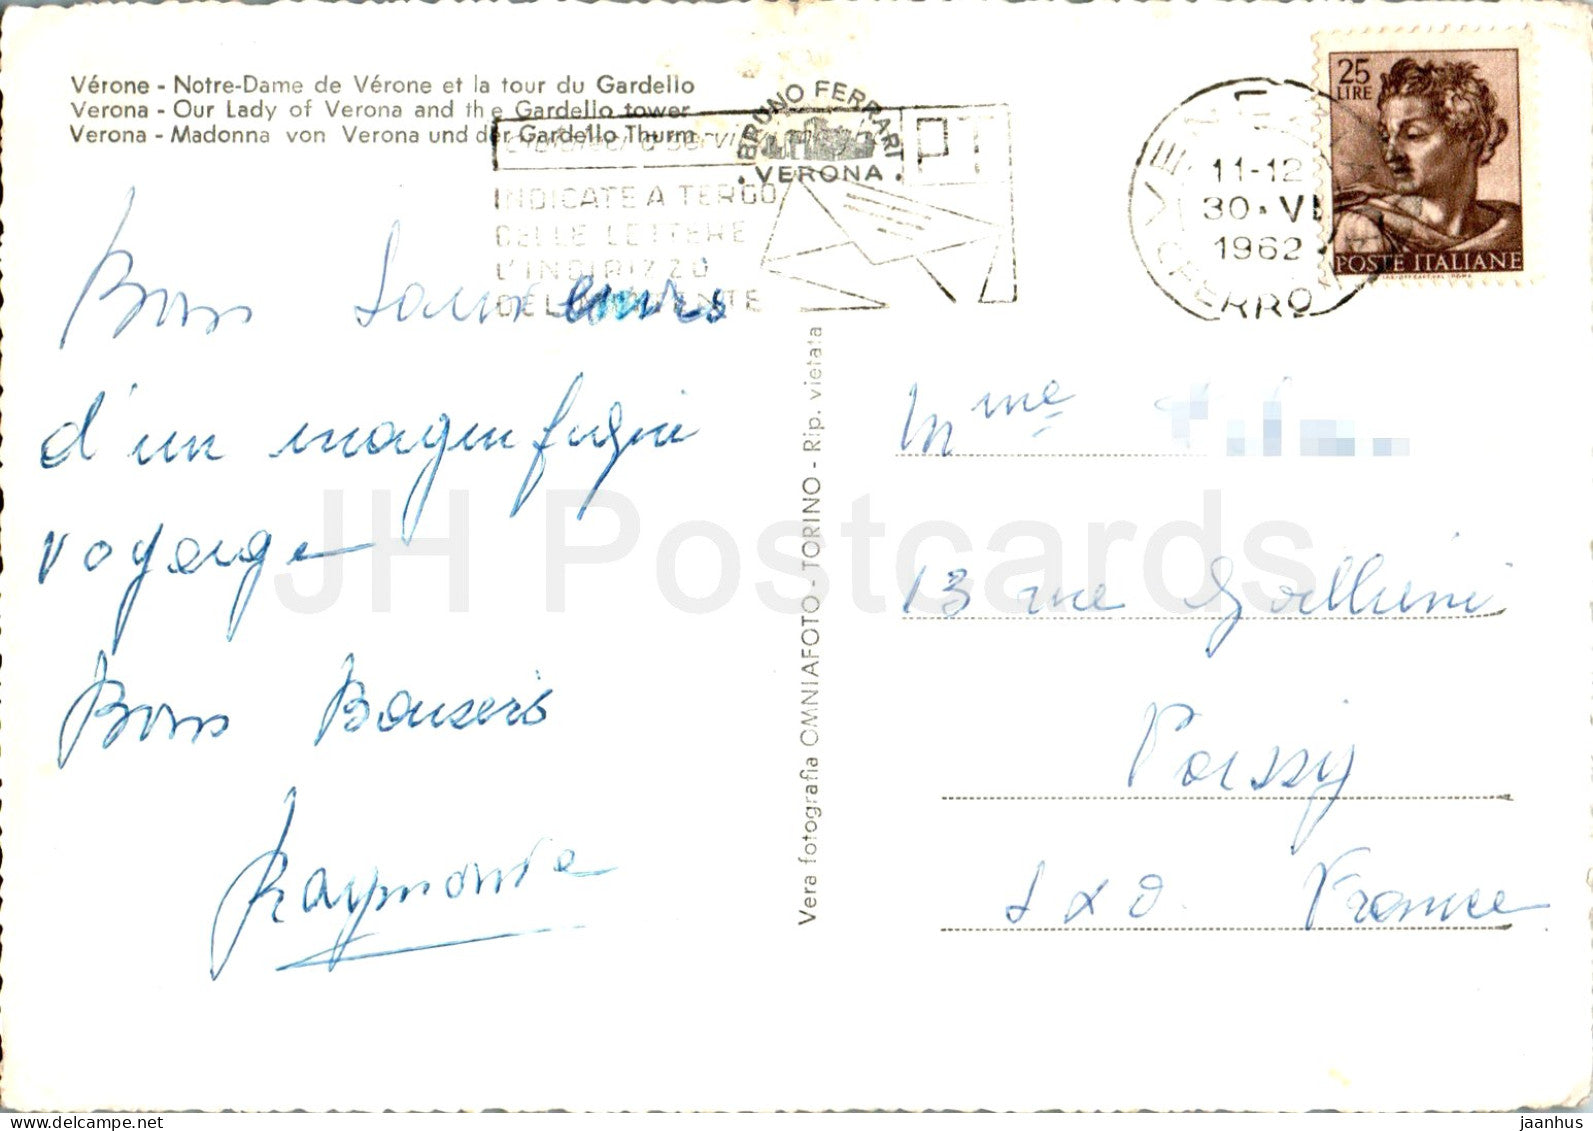 Vérone - Notre-Dame de Vérone et la tour du Gardello
Verona - Our Lady of Verona and the Gardello tower
Verona - Madonna von Verona und der Gardello Thurm
BRUNO FERRARI
• VERONA •
PT
INDICATE A TERGO
DELLE LETTERE
L'INDIRIZZO
DEL MITTENTE
11-12
30 • VI
1962
FERRO
25
LIRE
POSTE ITALIANE
Bons Souvenirs
d'un magnifique
voyage
Bons Baisers
Raymonde
Vera fotografia OMNIAFOTO - TORINO - Rip. vietata
Mme
13 rue Gallieni
Poissy
S x O. France
JH Postcards
delcampe.net
jaanhus